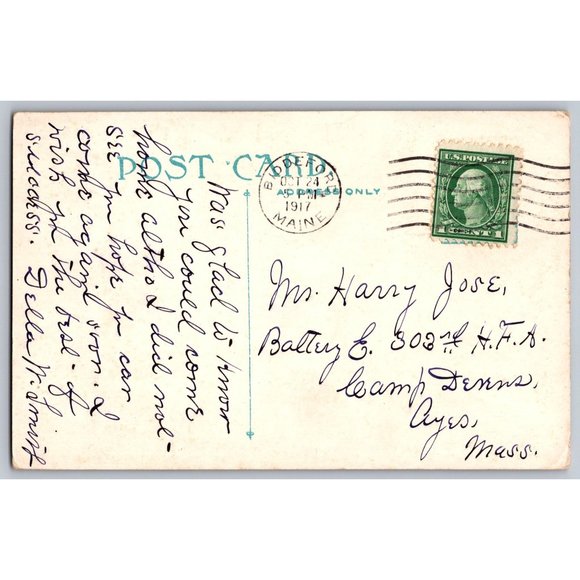 POST CARD
ADDRESS ONLY
BIDDEFORD
OCT 24
1917
MAINE
U.S. POSTAGE
Was glad to know
you could come
home altho I did not-
see you hope you can
come again soon. I
wish you the best- of
success. Della N. Smith
Mr. Harry Jose,
Battery E. 303rd H.F.A.
Camp Devens,
Ayer,
Mass.